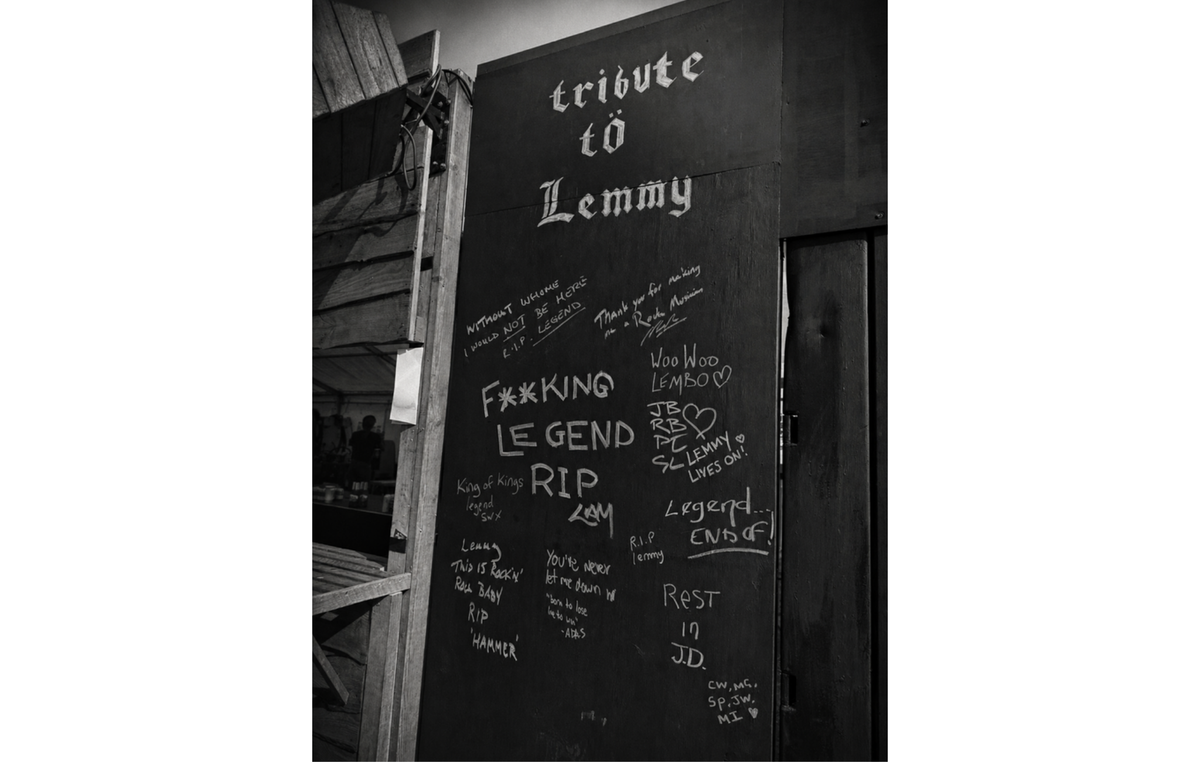 tribute
tö
Lemmy
WITHOUT WHOME
I WOULD NOT BE HERE
R.I.P. LEGEND
Thank you for making
me a Rock Musician
WOO WOO
LEMBO♡
F**KING
LEGEND
RIP
JB
RB♡
PC
SL
LEMMY
LIVES ON!
King of Kings
legend
swx
Legend...
ENDS OF!
R.I.P
lemmy
Lemmy
THIS IS ROCKIN'
ROLL BABY
RIP
'HAMMER'
You're never
let me down
"born to lose
live to win"
REST
in
J.D.
CW, MG,
SP, JW,
MI ♡